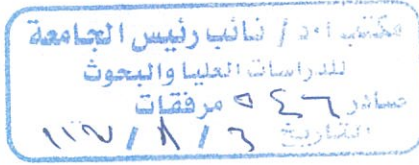 مكتب ا.د / نائب رئيس الجامعة
للدراسات العليا والبحوث
صادر ٩٤٦ مرفقات
التاريخ ٣ / ٨ /